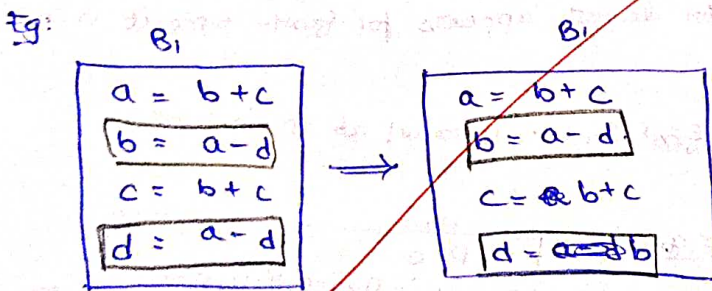 Eg:
B1
a = b+c
b = a-d
c = b+c
d = a-d
⟹
B1
a = b+c
b = a-d.
c = b+c
d = b